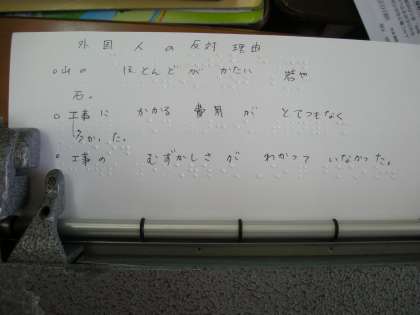 外国人の反対理由
○山の ほとんどが かたい 岩や
石。
○工事に かかる 費用 が とてつもなく
高かった。
○工事の むずかしさが わかって いなかった。